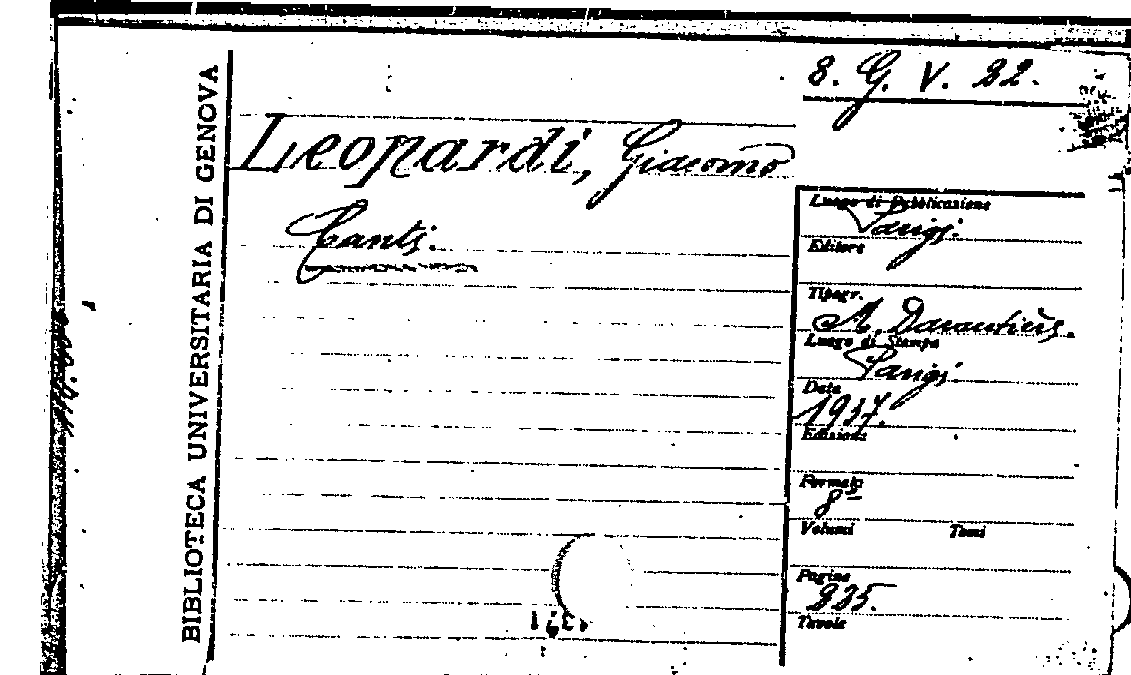 8. G. V. 22.
BIBLIOTECA UNIVERSITARIA DI GENOVA
Leopardi, Giacomo
Canti.
Luogo di Pubblicazione
Parigi.
Editore
Tipogr.
A. Darantière.
Luogo di Stampa
Parigi.
Data
1937.
Edizione
Formato
8º
Volumi Tomi
Pagine
235.
Tavole